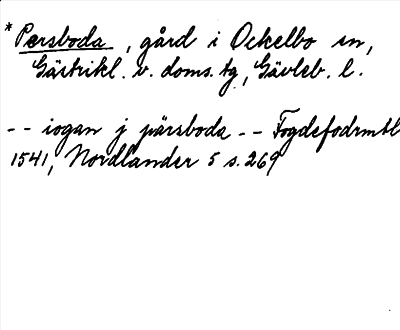 *Persboda, gård i Ockelbo sn,
Gästrikl. v. doms. tg, Gävleb. l.
-- iogan j pärsboda -- Fogdefodrmtl
1541, Nordlander 5 s. 269